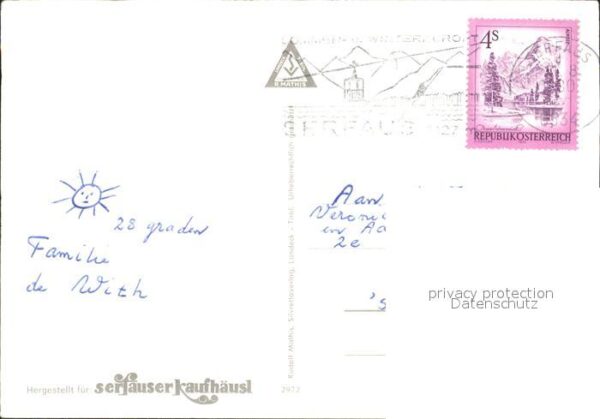 SOMMER- u. WINTERKURORT
R. MATHIS
SERFAUS 1427 m
SERFAUS
4S
REPUBLIK ÖSTERREICH
28 graden
Familie
de With
Aan
Veroni
in Aa
2e
's
privacy protection
Datenschutz
Rudolf Mathis, Silvrettaverlag, Landeck - Tirol. Urheberrechtlich geschützt
Hergestellt für: serfauser kaufhäusl
2972